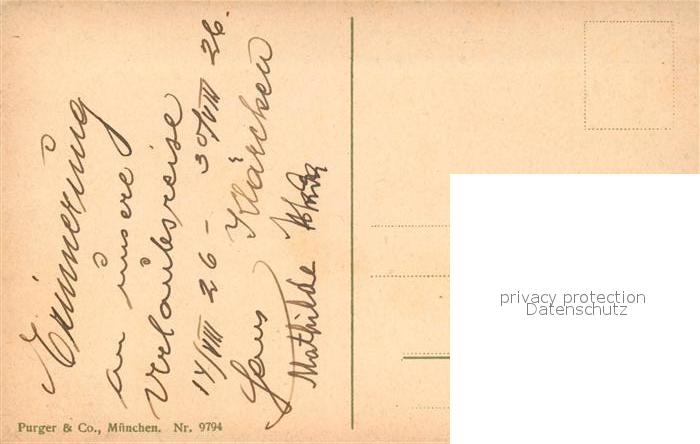 Erinnerung
an unsere
Urlaubsreise
14/VIII 26 - 30/VIII 26.
Hans Klärchen
Mathilde
Purger & Co., München. Nr. 9794
privacy protection
Datenschutz